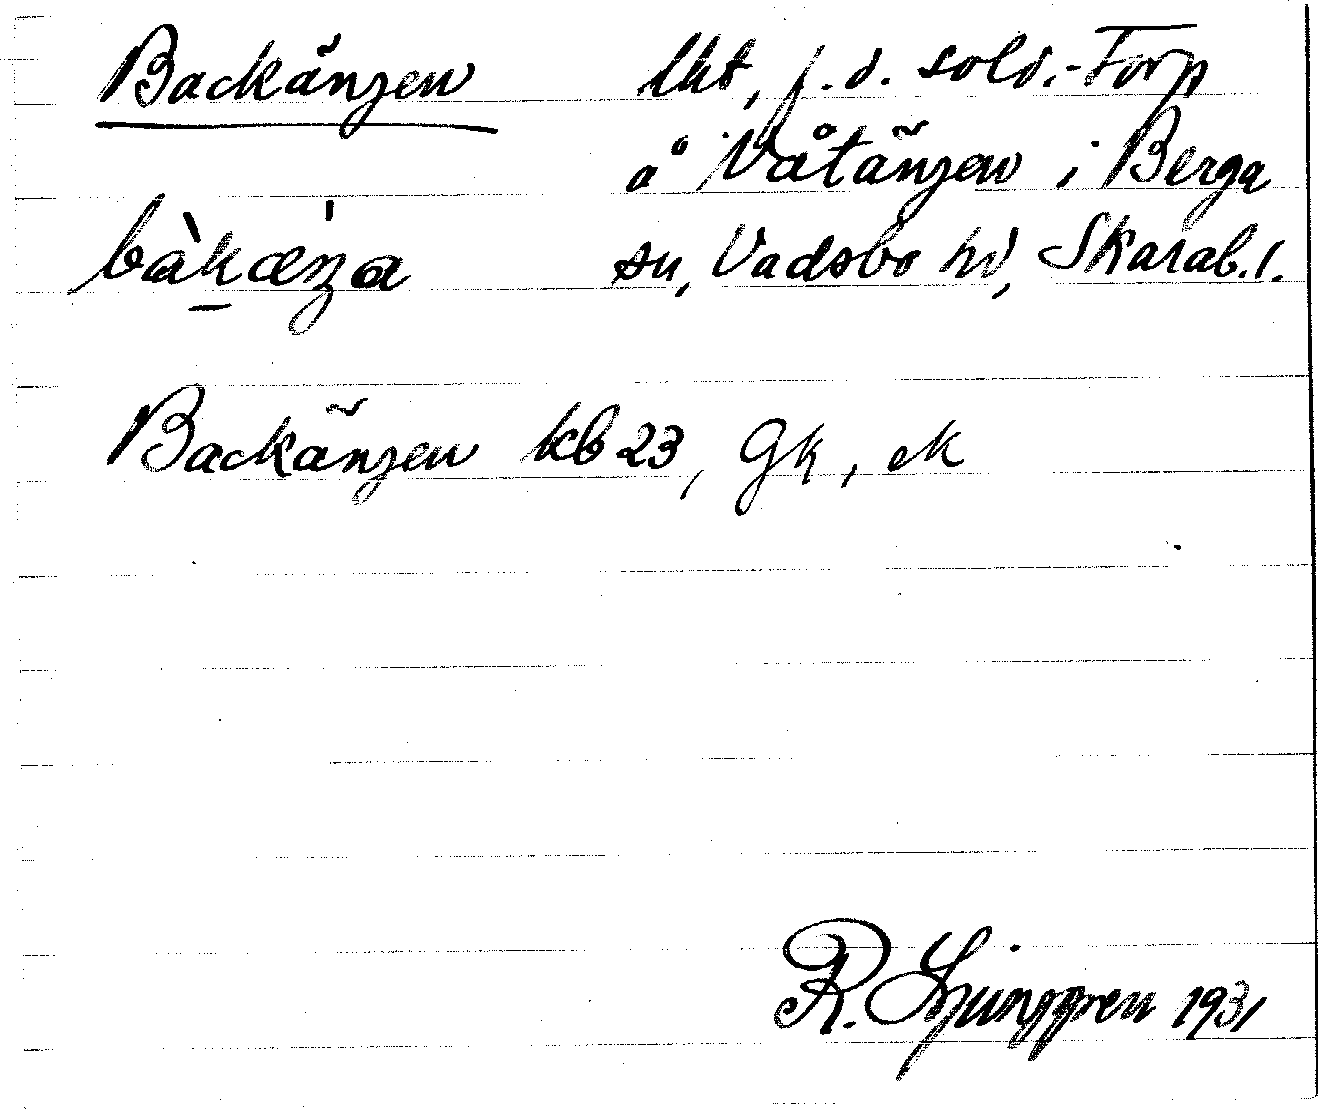 Backängen lht, f.d. sold.-Torp
å Våtängen i Berga
bàkæŋa sn, Vadsbo hd, Skarab. l.
Backängen kb 23, Gk, ek
R. Ljunggren 1931